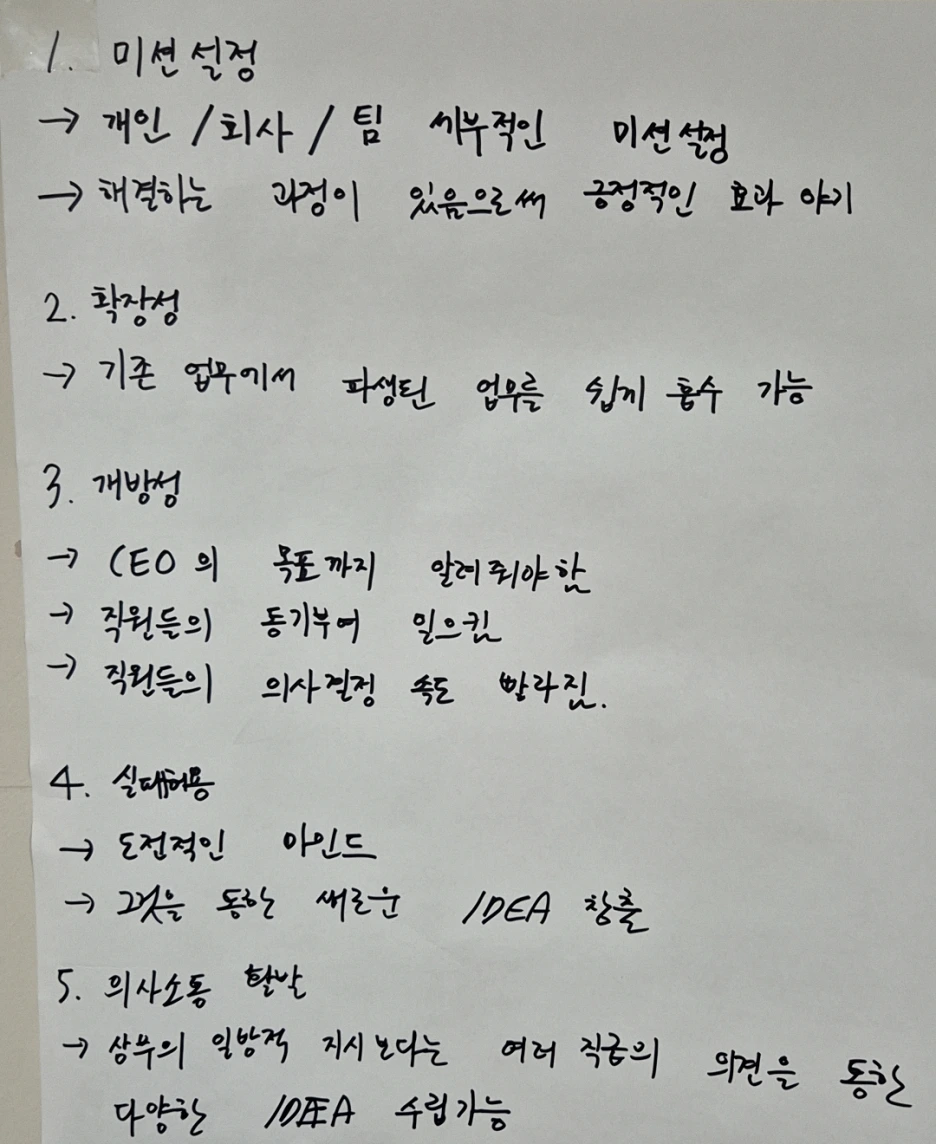 1. 미션설정
→ 개인 / 회사 / 팀 세부적인 미션설정
→ 해결하는 과정이 있음으로써 긍정적인 효과 야기
2. 확장성
→ 기존 업무에서 파생된 업무를 쉽게 흡수 가능
3. 개방성
→ CEO의 목표까지 알려줘야함
→ 직원들의 동기부여 일으킴
→ 직원들의 의사결정 속도 빨라짐.
4. 실패허용
→ 도전적인 마인드
→ 그것을 통한 새로운 IDEA 창출
5. 의사소통 활발
→ 상부의 일방적 지시보다는 여러 직급의 의견을 통한
다양한 IDEA 수립가능